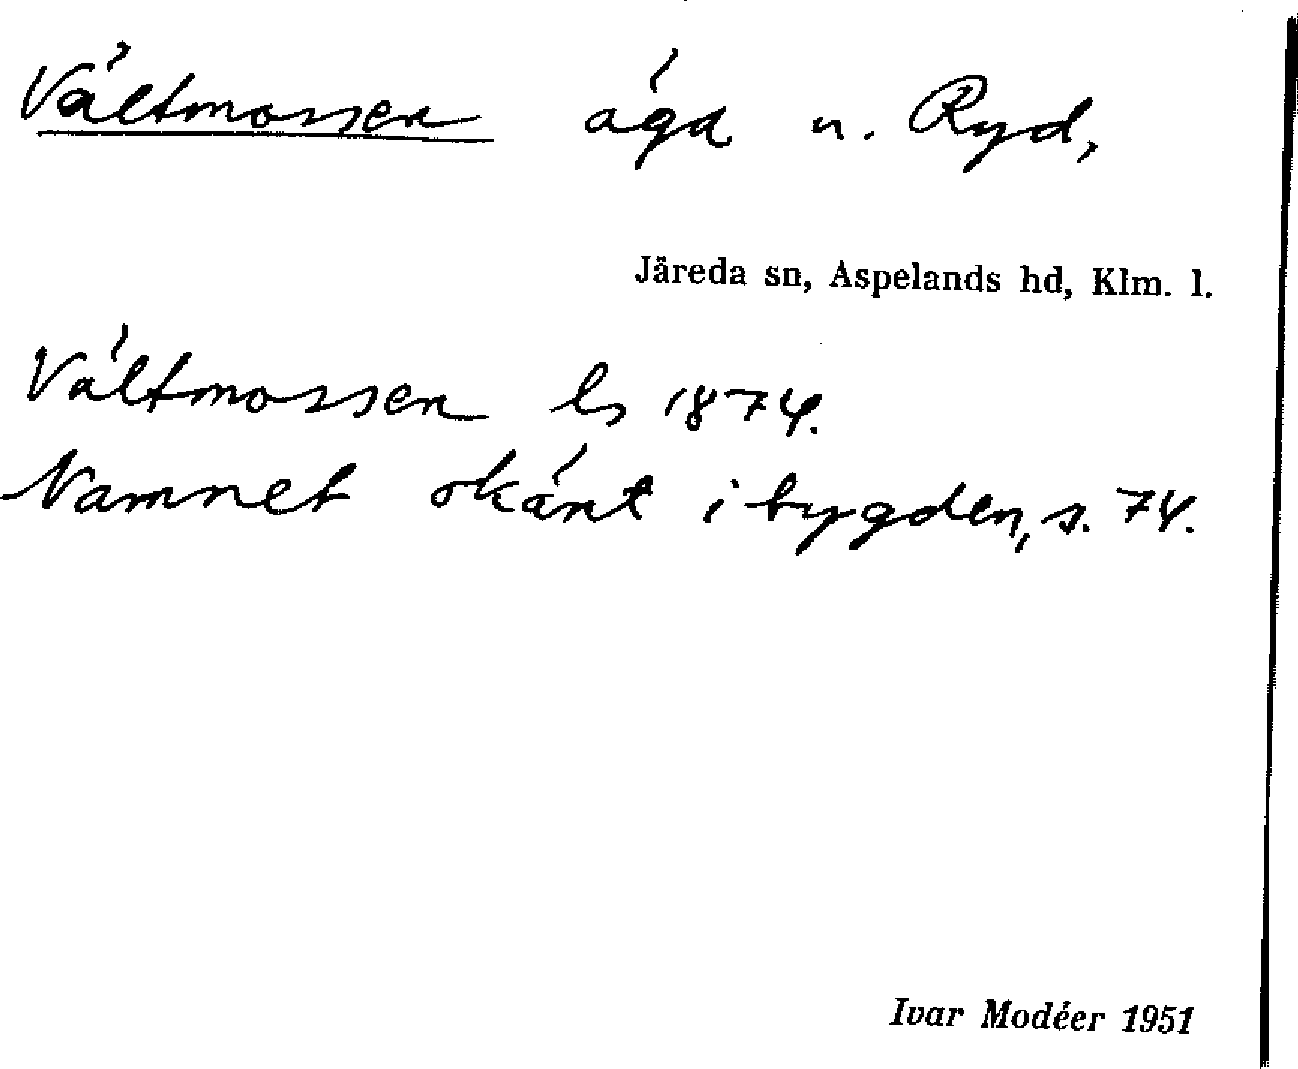 Vältmossen ägd u. Ryd,
Järeda sn, Aspelands hd, Klm. l.
Vältmossen ls 1874.
Namnet okänt i bygden, s. 74.
Ivar Modéer 1951